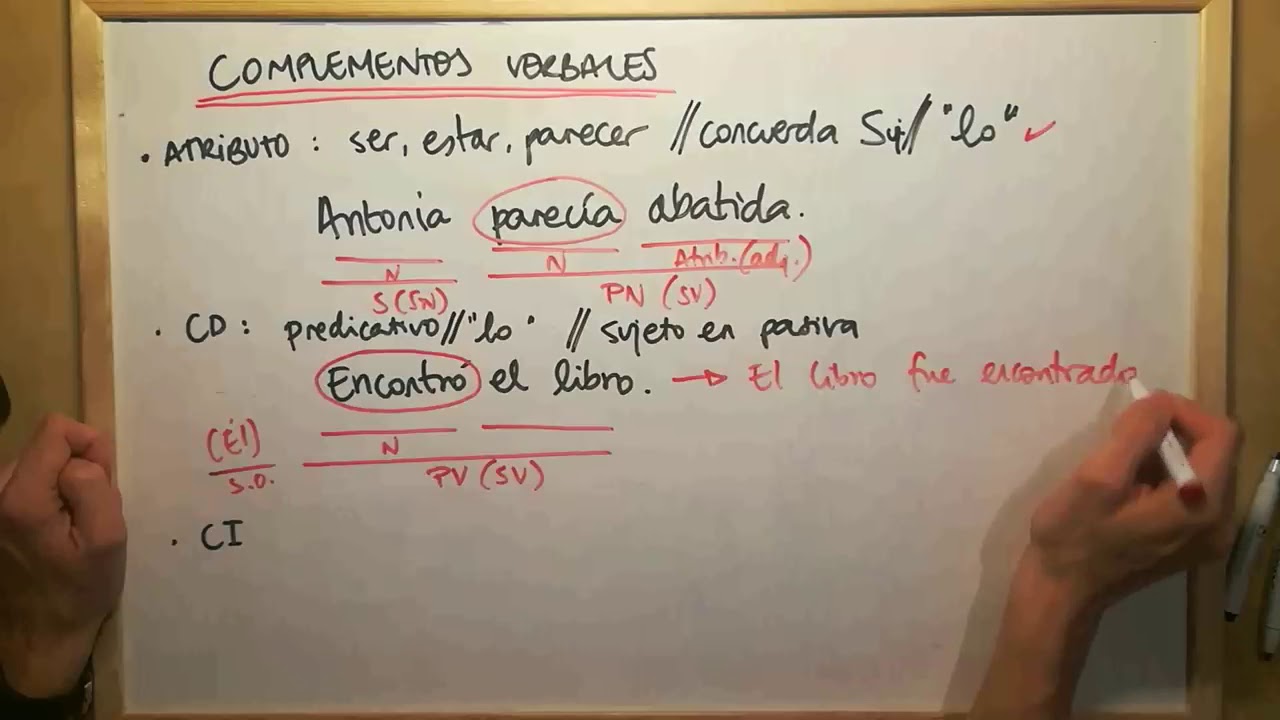 COMPLEMENTOS VERBALES
. ATRIBUTO : ser, estar, parecer // concuerda Suj // "lo" ✓
Antonia parecía abatida.
N N Atrib. (adj.)
S (SN) PN (SV)
. CD : predicativo // "lo" // sujeto en pasiva
Encontró el libro. → El libro fue encontrado
(Él) N
S.O. PV (SV)
. CI